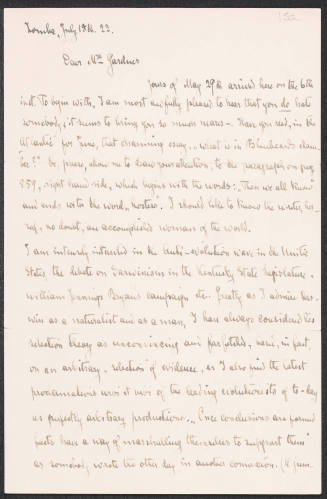 13a
Zomba, July 18th. 22.
Dear Mrs Gardner
Yours of May 29th arrived here on the 6th
inst. To begin with, I am most awfully pleased to hear that you do hate
somebody; it seems to bring you so much nearer. Have you read, in the
Atlantic for June, that charming essay, what is in Bluebeard's
? If not, please, allow me to draw your attention, to the paragraph on page
859, right hand side, which begins with the words: "Then we all know"
and ends with the word, "hostess". I should like to know the writer,
no doubt, an accomplished woman of the world.
I am intensely interested in the Anti-evolution wave in the United
States, the debate on Darwinism in the Kentucky State legislature,
William Jennings Bryan's campaign etc. Greatly as I admire Dar-
win as a naturalist and as a man, I have always considered his
selection theory as unconvincing and farfetched, based, in part,
on an arbitrary selection of evidence, as I also find the latest
pronunciamentos of the leading evolutionists of to-day
as perfectly arbitrary productions... "Once conclusions are formed
facts have a way of marshalling themselves to support them"
as somebody wrote the other day in another connexion.